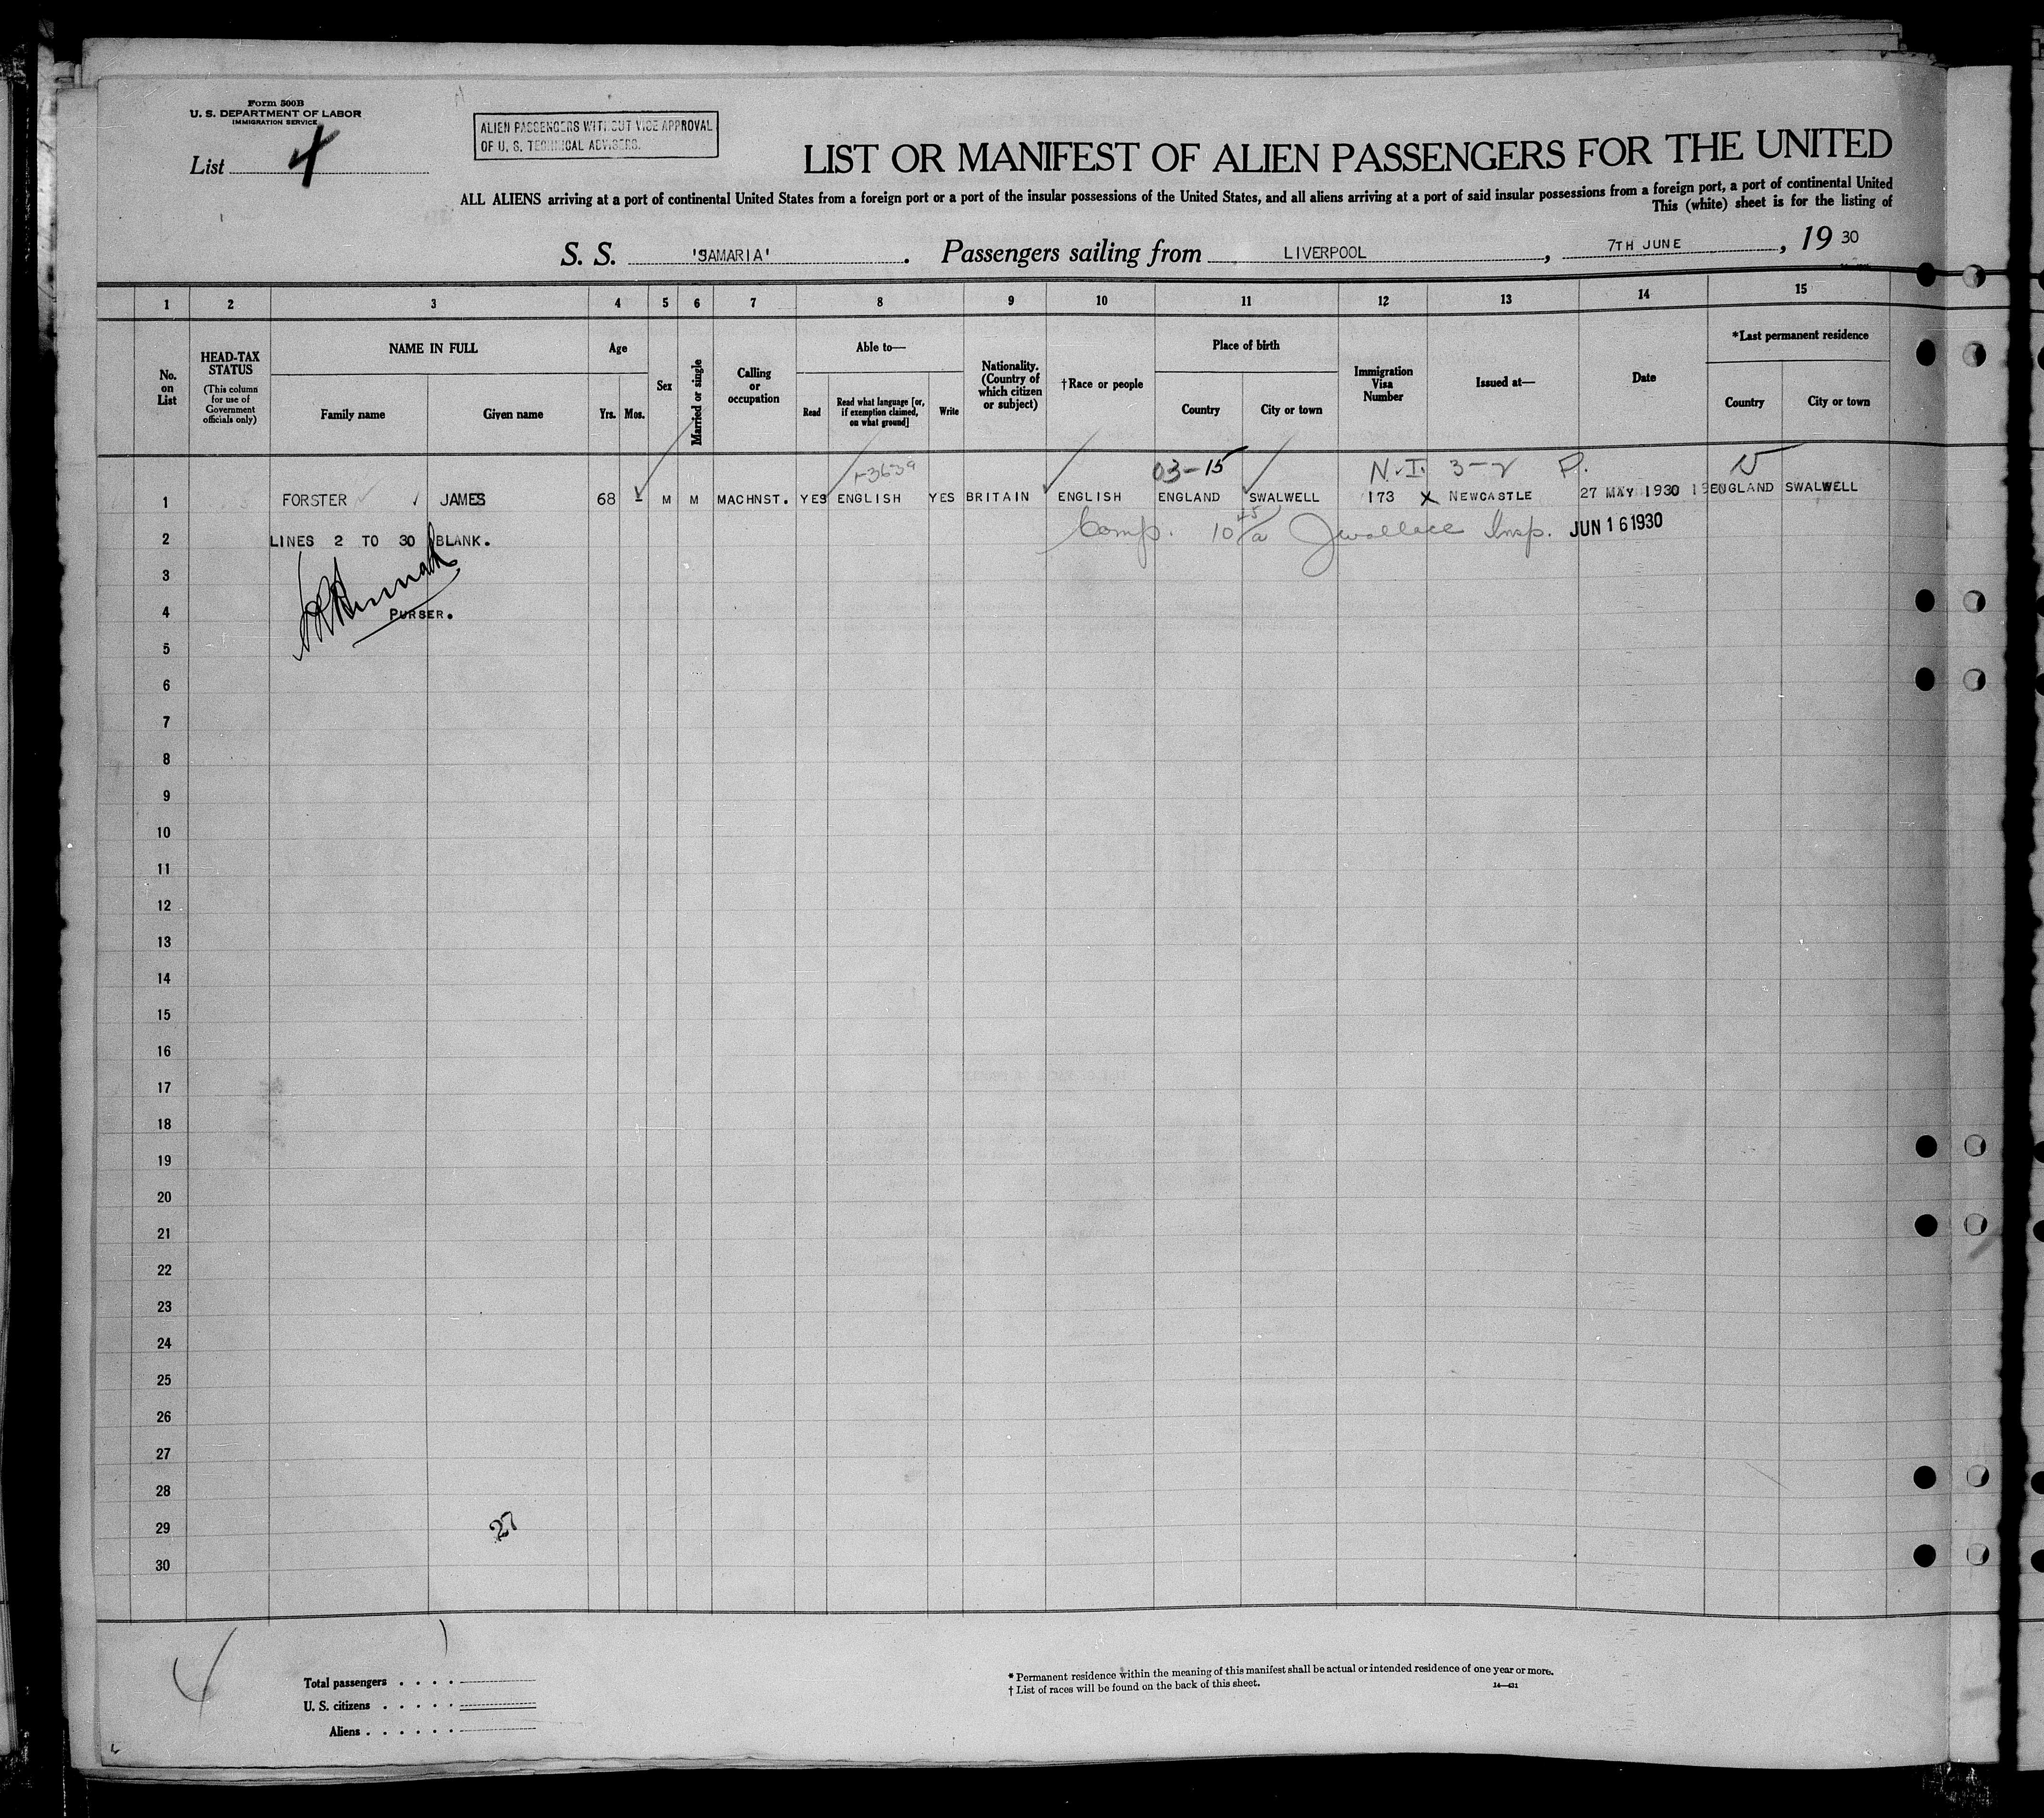 Form 500B
U. S. DEPARTMENT OF LABOR
IMMIGRATION SERVICE
List 4
ALIEN PASSENGERS WITHOUT VICE APPROVAL
OF U. S. TECHNICAL ADVISERS.
LIST OR MANIFEST OF ALIEN PASSENGERS FOR THE UNITED
ALL ALIENS arriving at a port of continental United States from a foreign port or a port of the insular possessions of the United States, and all aliens arriving at a port of said insular possessions from a foreign port, a port of continental United
This (white) sheet is for the listing of
S. S. 'SAMARIA'. Passengers sailing from LIVERPOOL, 7TH JUNE, 19 30
1 2 3 4 5 6 7 8 9 10 11 12 13 14 15
No. on List
HEAD-TAX STATUS (This column for use of Government officials only)
NAME IN FULL
Family name Given name
Age
Yrs. Mos.
Sex
Married or single
Calling or occupation
Able to—
Read Read what language [or, if exemption claimed, on what ground] Write
Nationality. (Country of which citizen or subject)
†Race or people
Place of birth
Country City or town
Immigration Visa Number
Issued at—
Date
*Last permanent residence
Country City or town
03-15 N.I. 3-2 P.
1 FORSTER JAMES 68 - M M MACHNST. YES ENGLISH YES BRITAIN ENGLISH ENGLAND SWALWELL 173 X NEWCASTLE 27 MAY 1930 ENGLAND SWALWELL
2 LINES 2 TO 30 BLANK. Comp. 10 45/a JWallace Insp. JUN 16 1930
3
4 PURSER.
5
6
7
8
9
10
11
12
13
14
15
16
17
18
19
20
21
22
23
24
25
26
27
28
29 27
30
Total passengers . . . .
U. S. citizens . . . . .
Aliens . . . . . .
* Permanent residence within the meaning of this manifest shall be actual or intended residence of one year or more.
† List of races will be found on the back of this sheet.
14—431